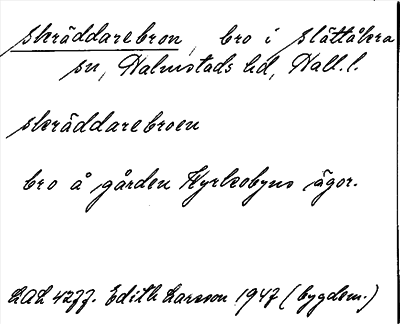 skräddarebron, bro i Slättåkra
sn, Halmstads hd, Hall. l.
skräddarebroen
bro å gården Kyrkobyns ägor.
LAL 4277. Edith Larsson 1947 (bygdem.)